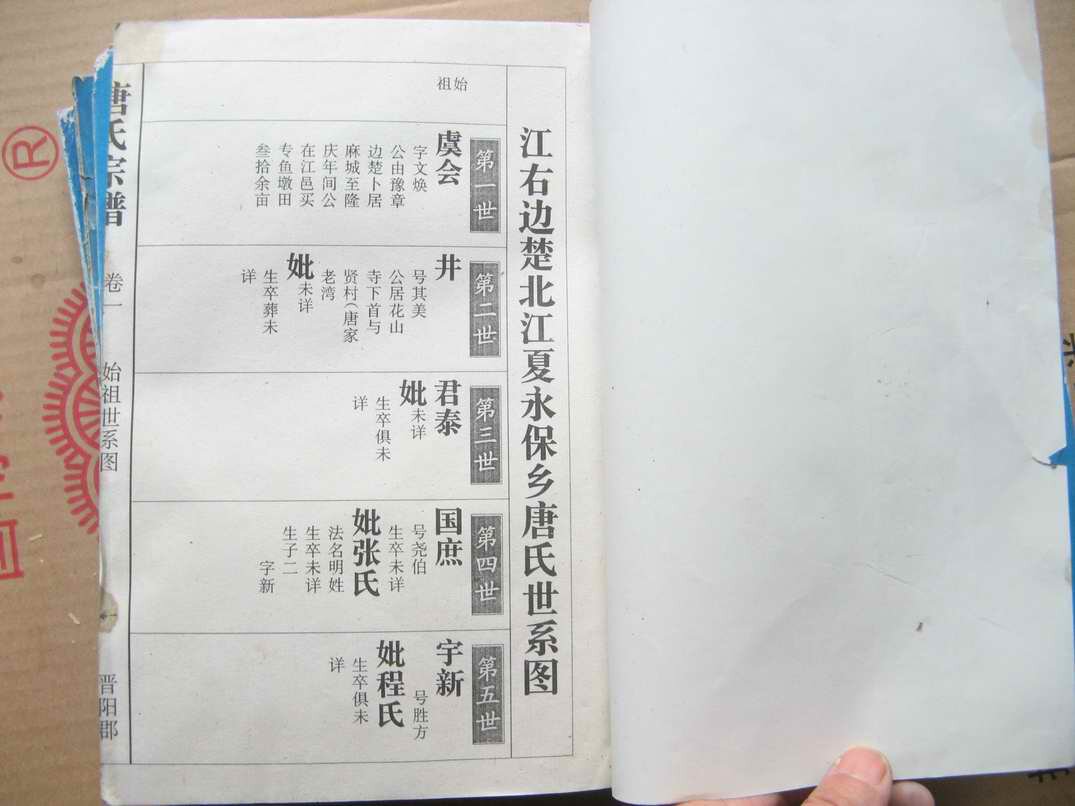 江右边楚北江夏永保乡唐氏世系图
始祖
第一世
虞会
字文焕
公由豫章
边楚卜居
麻城至隆
庆年间公
在江邑买
专鱼墩田
叁拾余亩
第二世
井
号其美
公居花山
寺下首与
贤村(唐家
老湾
妣未详
生卒葬未
详
第三世
君泰
妣未详
生卒俱未
详
第四世
国庶
号尧伯
生卒未详
妣张氏
法名明姓
生卒未详
生子二
字新
第五世
宇新
号胜方
妣程氏
生卒俱未
详
唐氏宗谱
卷一
始祖世系图
晋阳郡
®